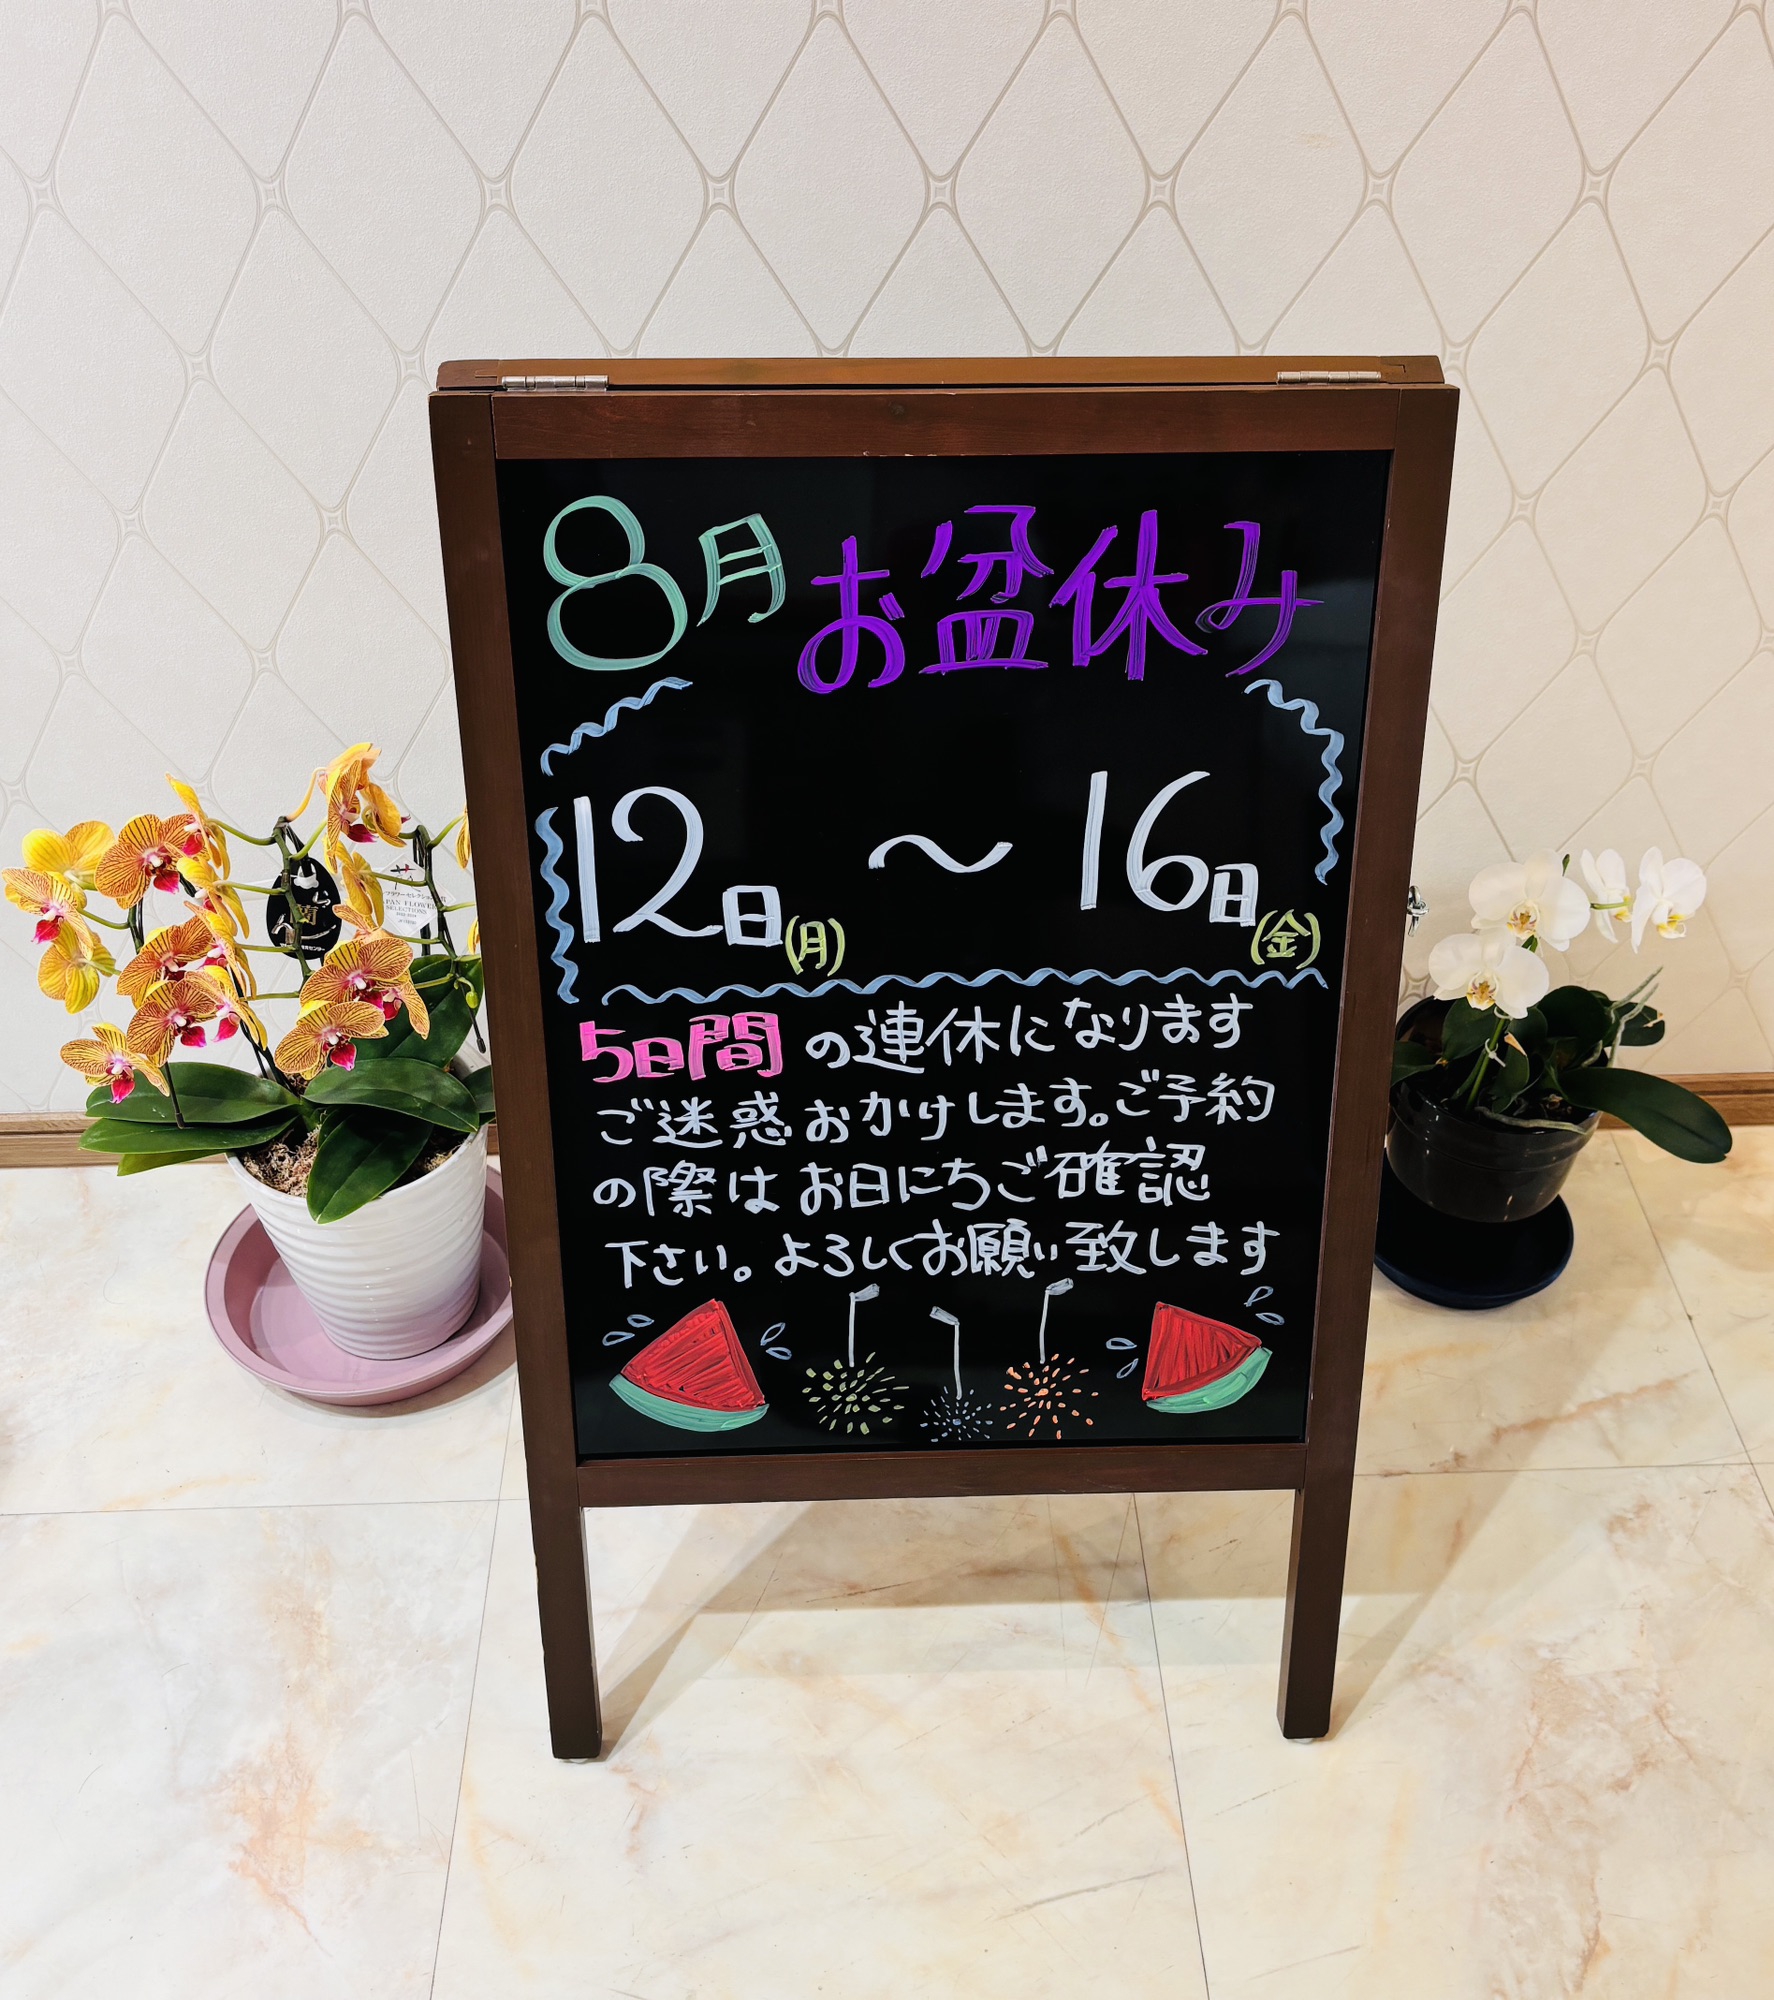 8月お盆休み
12日(月) 〜 16日(金)
5日間の連休になります
ご迷惑おかけします。ご予約
の際はお日にちご確認
下さい。よろしくお願い致します
蘭
フラワーセレクション
JAPAN FLOWER
SELECTIONS